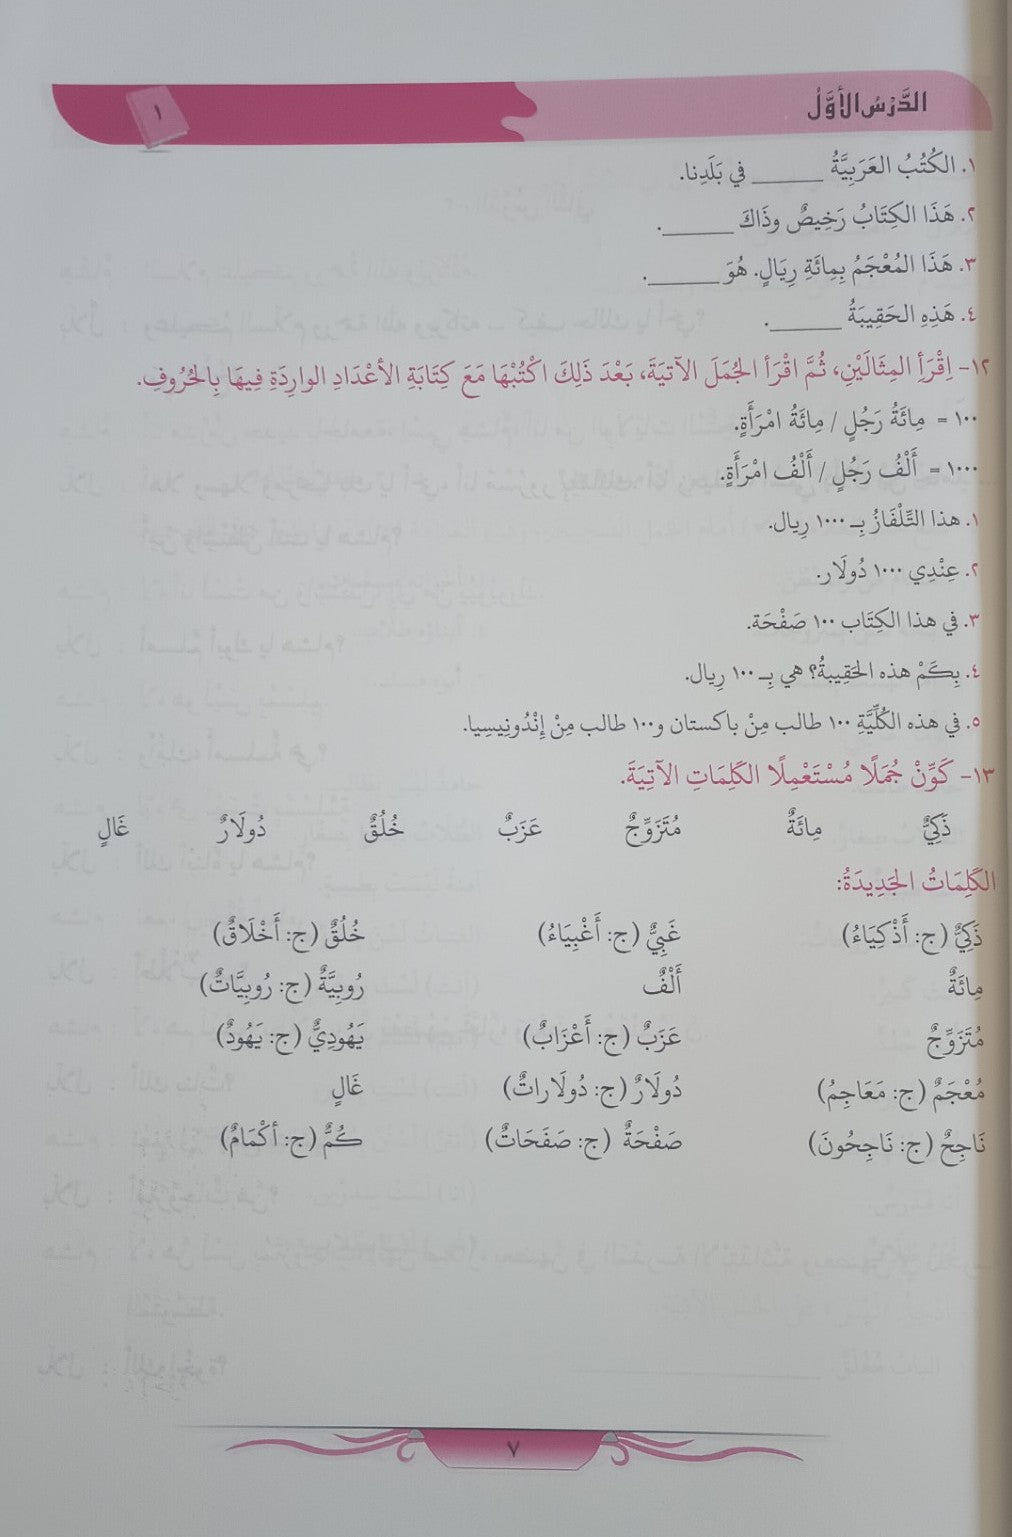 الدَّرْسُ الأَوَّلُ
١
١. الكُتُبُ العَرَبِيَّةُ ______ في بَلَدِنا.
٢. هَذَا الكِتَابُ رَخِيصٌ وذَاكَ ______.
٣. هَذَا المُعْجَمُ بِمِائَةِ رِيَالٍ. هُوَ ______.
٤. هَذِهِ الحَقِيبَةُ ______.
١٢- اِقْرَأِ المِثَالَيْنِ، ثُمَّ اقْرَأ الجُمَلَ الآتِيَةَ، بَعْدَ ذَلِكَ اكْتُبْهَا مَعَ كِتَابَةِ الأَعْدَادِ الوارِدَةِ فِيهَا بِالحُرُوفِ.
١٠٠ = مِائَةُ رَجُلٍ / مِائَةُ امْرَأَةٍ.
١٠٠٠ = أَلْفُ رَجُلٍ / أَلْفُ امْرَأَةٍ.
١. هذا التِّلْفَازُ بِـ ١٠٠٠ رِيال.
٢. عِنْدِي ١٠٠٠ دُولَار.
٣. في هذا الكِتَاب ١٠٠ صَفْحَة.
٤. بِكَمْ هذه الحَقِيبةُ؟ هي بِـ ١٠٠ رِيال.
٥. في هذه الكُلِّيَّةِ ١٠٠ طالب مِنْ باكستان و١٠٠ طالب مِنْ إنْدُونِيسِيا.
١٣- كَوِّنْ جُمَلًا مُسْتَعْمِلًا الكَلِمَاتِ الآتِيَةَ.
ذَكِيٌّ مِائَةٌ مُتَزَوِّجٌ عَزَبٌ خُلُقٌ دُولَارٌ غَالٍ
الكَلِمَاتُ الجَدِيدَةُ:
ذَكِيٌّ (ج: أَذْكِيَاءُ) غَبِيٌّ (ج: أَغْبِيَاءُ) خُلُقٌ (ج: أَخْلَاقٌ)
مِائَةٌ أَلْفٌ رُوبِيَّةٌ (ج: رُوبِيَّاتٌ)
مُتَزَوِّجٌ عَزَبٌ (ج: أَعْزَابٌ) يَهُودِيٌّ (ج: يَهُودٌ)
مُعْجَمٌ (ج: مَعَاجِمُ) دُولَارٌ (ج: دُولَاراتٌ) غَالٍ
نَاجِحٌ (ج: نَاجِحُونَ) صَفْحَةٌ (ج: صَفَحَاتٌ) كُمٌّ (ج: أكْمَامٌ)
٧